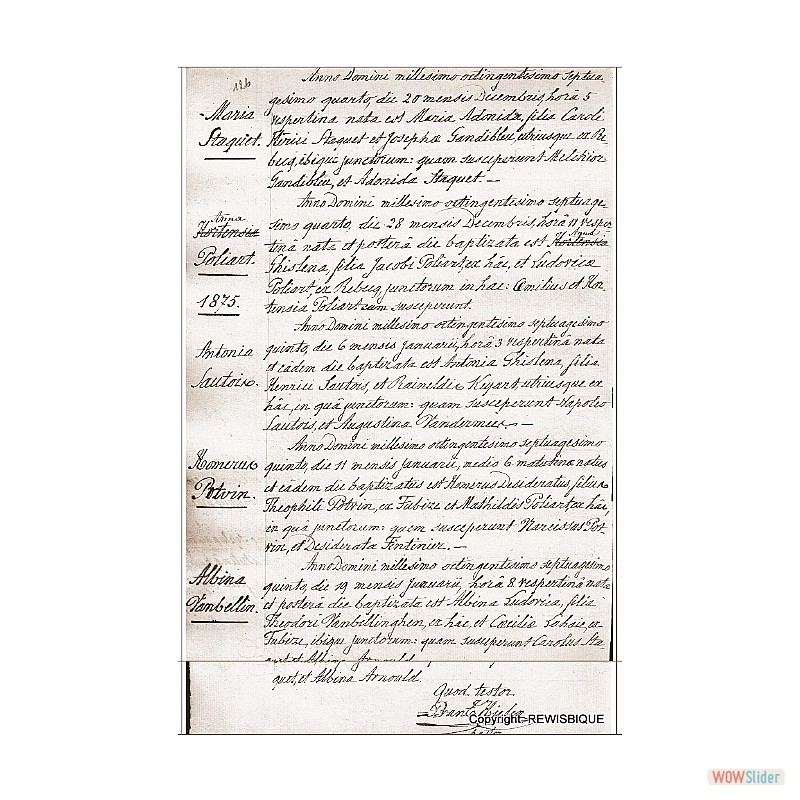 126
Anno Domini millesimo octingentesimo septua-
gesimo quarto, die 20 mensis Decembris, horâ 5
Maria
vespertina nata est Maria Adonida, filia Caroli
Staquet.
Staquet et Josephæ Gandibleu, utriusque ex Re-
becq, ibique junctorum: quam susceperunt Melchior
Gandibleu, et Adonida Staquet. —
Anno Domini millesimo octingentesimo septuage-
Anna
Hortensia
simo quarto, die 28 mensis Decembris, horâ 11 vesper-
tinâ nata et posterâ die baptizata est Hortensia
Poliart.
Ghislena, filia Jacobi Poliart, ex hâc, et Ludovicæ
Poliart, ex Rebecq, junctorum in hâc: Æmilius et Hor-
1875.
tensia Poliart eam susceperunt.
Anno Domini millesimo octingentesimo septuagesimo
Antonia
quinto, die 6 mensis Januarii, horâ 3 vespertinâ nata
et eâdem die baptizata est Antonia Ghislena, filia
Lautois.
Henrici Lautois, et Raineldis Kegart, utriusque ex
hâc, in quâ junctorum: quam susceperunt Napoleo
Lautois, et Augustina Vandermees. —
Anno Domini millesimo octingentesimo septuagesimo
Homerus
quinto, die 11 mensis Januarii, mediâ 6 matutina natus
et eâdem die baptizatus est Homerus Desideratus, filius
Potvin.
Theophili Potvin, ex Tubize et Mathildis Poliart, ex hâc,
in quâ junctorum: quem susceperunt Narcissus Pot-
vin, et Desiderata Fintinier. —
Anno Domini millesimo octingentesimo septuagesimo
Albina
quinto, die 19 mensis Januarii, horâ 8 vespertinâ nata
et posterâ die baptizata est Albina Ludovica, filia
Vanbellin.
Theodori Vanbellinghen, ex hâc, et Cœcilia Lahaie, ex
Tubize, ibique junctorum: quam susceperunt Carolus Sta-
quet, et Albina Arnould
quet, et Albina Arnould.
Quod testor.
Copyright-REWISBIQUE
WOWSlider